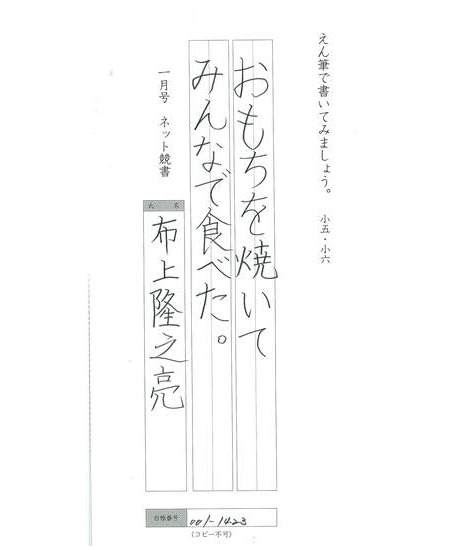 えん筆で書いてみましょう。 小五・小六
おもちを焼いて
みんなで食べた。
一月号 ネット競書
氏名
布上隆之亮
台帳番号 001-1423
(コピー不可)